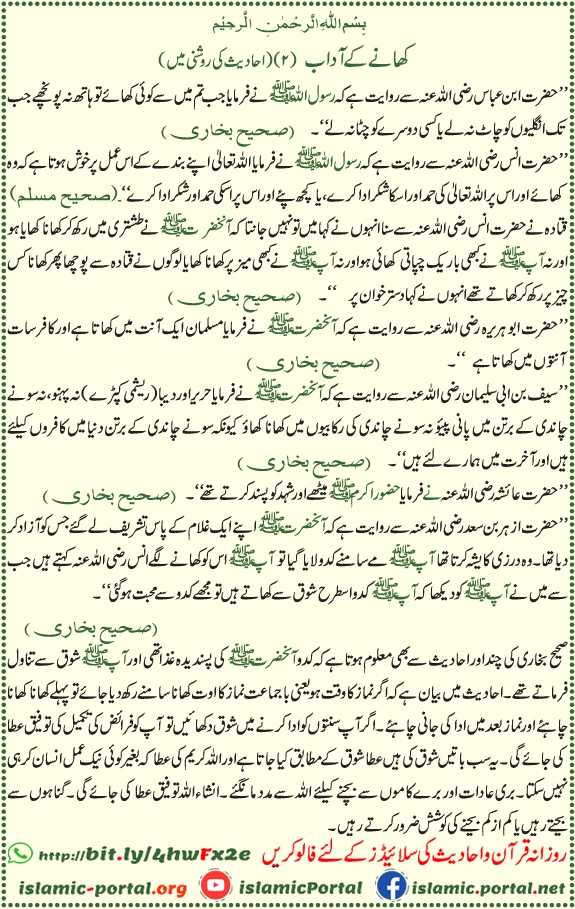 بِسْمِ اللهِ الرَّحْمٰنِ الرَّحِيْمِ
کھانے کے آداب (۲) (احادیث کی روشنی میں)
’’حضرت ابن عباس رضی اللہ عنہ سے روایت ہے کہ رسول اللہ ﷺ نے فرمایا جب تم میں سے کوئی کھائے تو ہاتھ نہ پونچھے جب
تک انگلیوں کو چاٹ نہ لے یا کسی دوسرے کو چٹا نہ لے‘‘۔ (صحیح بخاری)
’’حضرت انس رضی اللہ عنہ سے روایت ہے کہ رسول اللہ ﷺ نے فرمایا اللہ تعالیٰ اپنے بندے کے اس عمل پر خوش ہوتا ہے کہ وہ
کھائے اور اس پر اللہ تعالیٰ کی حمد اور اسکا شکر ادا کرے، یا کچھ پئے اور اس پر اسکی حمد اور شکر ادا کرے‘‘۔ (صحیح مسلم)
قتادہ نے حضرت انس رضی اللہ عنہ سے سنا انہوں نے کہا میں تو نہیں جانتا کہ آنحضرت ﷺ نے طشتری میں رکھ کر کھانا کھایا ہو
اور نہ آپ ﷺ نے کبھی باریک چپاتی کھائی ہو اور نہ آپ ﷺ نے کبھی میز پر کھانا کھایا لوگوں نے قتادہ سے پوچھا پھر کھانا کس
چیز پر رکھ کر کھاتے تھے انہوں نے کہا دسترخوان پر ‘‘۔ (صحیح بخاری)
’’حضرت ابو ہریرہ رضی اللہ عنہ سے روایت ہے کہ آنحضرت ﷺ نے فرمایا مسلمان ایک آنت میں کھاتا ہے اور کافر سات
آنتوں میں کھاتا ہے ‘‘۔ (صحیح بخاری)
’’سیف بن ابی سلیمان رضی اللہ عنہ سے روایت ہے کہ آنحضرت ﷺ نے فرمایا حریر اور دیبا (ریشمی کپڑے) نہ پہنو، نہ سونے
چاندی کے برتن میں پانی پیئو نہ سونے چاندی کی رکابیوں میں کھانا کھاؤ کیونکہ سونے چاندی کے برتن دنیا میں کافروں کیلئے
ہیں اور آخرت میں ہمارے لئے ہیں‘‘۔ (صحیح بخاری)
’’حضرت عائشہ رضی اللہ عنہ نے فرمایا حضور اکرم ﷺ میٹھے اور شہد کو پسند کرتے تھے‘‘۔ (صحیح بخاری)
’’حضرت ازہر بن سعد رضی اللہ عنہ سے روایت ہے کہ آنحضرت ﷺ اپنے ایک غلام کے پاس تشریف لے گئے جس کو آزاد کر
دیا تھا۔ وہ درزی کا پیشہ کرتا تھا آپ ﷺ کے سامنے کدو لایا گیا تو آپ ﷺ اس کو کھانے لگے انس رضی اللہ عنہ کہتے ہیں جب
سے میں نے آپ ﷺ کو دیکھا کہ آپ ﷺ کدو اسطرح شوق سے کھاتے ہیں تو مجھے کدو سے محبت ہو گئی‘‘۔
(صحیح بخاری)
صحیح بخاری کی چند اور احادیث سے بھی معلوم ہوتا ہے کہ کدو آنحضرت ﷺ کی پسندیدہ غذا تھی اور آپ ﷺ شوق سے تناول
فرماتے تھے۔ احادیث میں بیان ہے کہ اگر نماز کا وقت ہو یعنی با جماعت نماز کا اوت کھانا سامنے رکھ دیا جائے تو پہلے کھانا کھانا
چاہئے اور نماز بعد میں ادا کی جانی چاہئے۔ اگر آپ سنتوں کو ادا کرنے میں شوق دکھائیں تو آپ کو فرائض کی تکمیل کی توفیق عطا
کی جائے گی۔ یہ سب باتیں شوق کی ہیں عطا شوق کے مطابق کیا جاتا ہے اور اللہ کریم کی عطا کہ بغیر کوئی نیک عمل انسان کر ہی
نہیں سکتا۔ بری عادات اور برے کاموں سے بچنے کیلئے اللہ سے مدد مانگئے۔ انشاء اللہ توفیق عطا کی جائے گی۔ گناہوں سے
بچتے رہیں یا کم از کم بچنے کی کوشش ضرور کرتے رہیں۔
روزانہ قرآن و احادیث کی سلائیڈز کے لئے فالو کریں http://bit.ly/4hwFx2e
islamic-portal.org islamicPortal islamic.portal.net